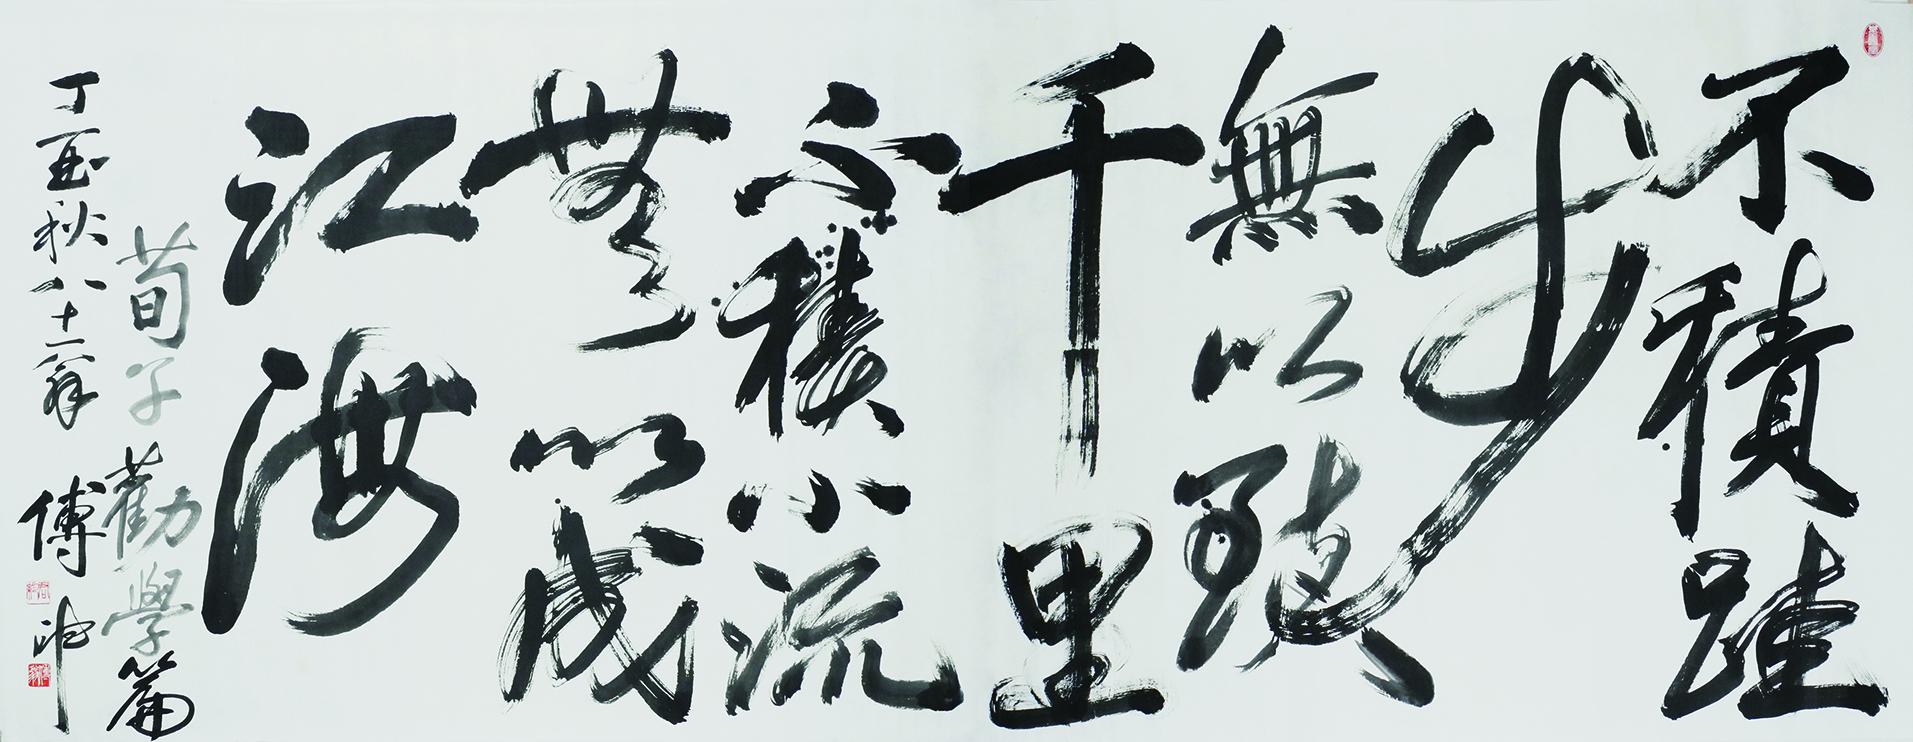 不積跬
步
無以臻
千里
不積小流
無以成
江海
荀子勸學篇
丁酉秋八十一翁 傅申